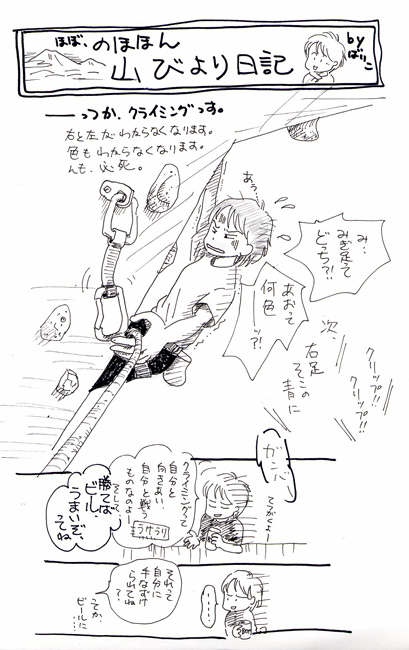 ほぼ、のほほん
山びより日記
by ばりこ
――っつか、クライミングっす。
右と左がわからなくなります。
色もわからなくなります。
んも、必死。
あぅ…
み…
みぎ足て
どっち?!
あおって
何色
ーッ?!
次、
右足
そこの
青に
クリップ!!
クリップ!!
ガンバ
てつがくよー
クライミングって
自分と
向きあい、
自分と戦う
ものなのよー
うサラリ
そして、
勝てば
ビール
うまいぞ、
ってね
それって
自分に
手なずけ
られてね?
てか、
ビールに…
………